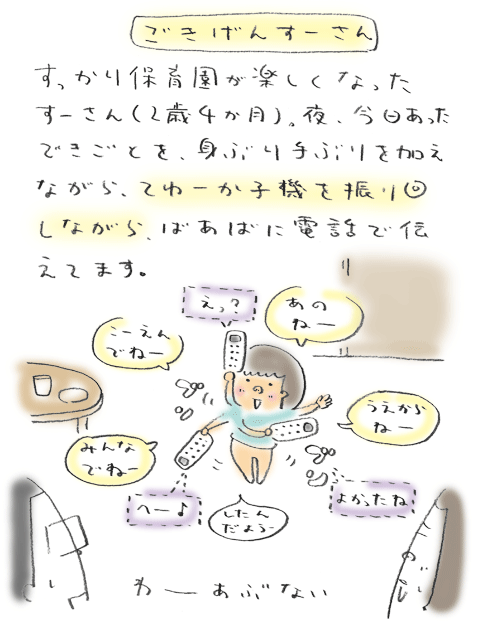 ごきげんすーさん
すっかり保育園が楽しくなった
すーさん(2歳4か月)。夜、今日あった
できごとを、身ぶり手ぶりを加え
ながら、てわーか子機を振り回
しながら、ばあばに電話で伝
えてます。
えっ?
あの
ねー
こーえん
でねー
うえから
ねー
みんな
でねー
へー♪
したん
だよぅー
よかったね
わーあぶない